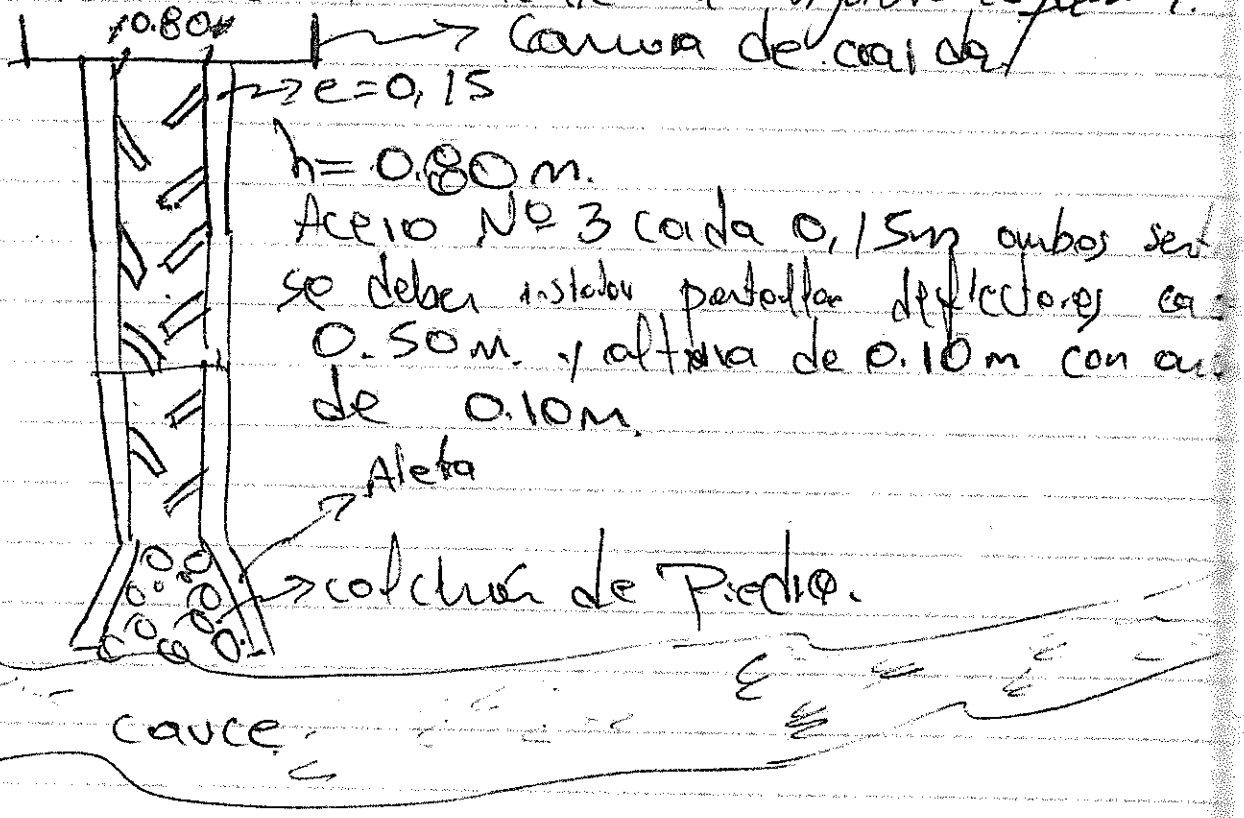 0.80
Camara de caida
e=0,15
h= 0.80 m.
Acero Nº 3 cada 0,15m ambos sent
se deben instalar pantallas deflectores ca
0.50m. y altura de 0.10m con
de 0.10m.
Aleta
colchón de Piedra.
cauce